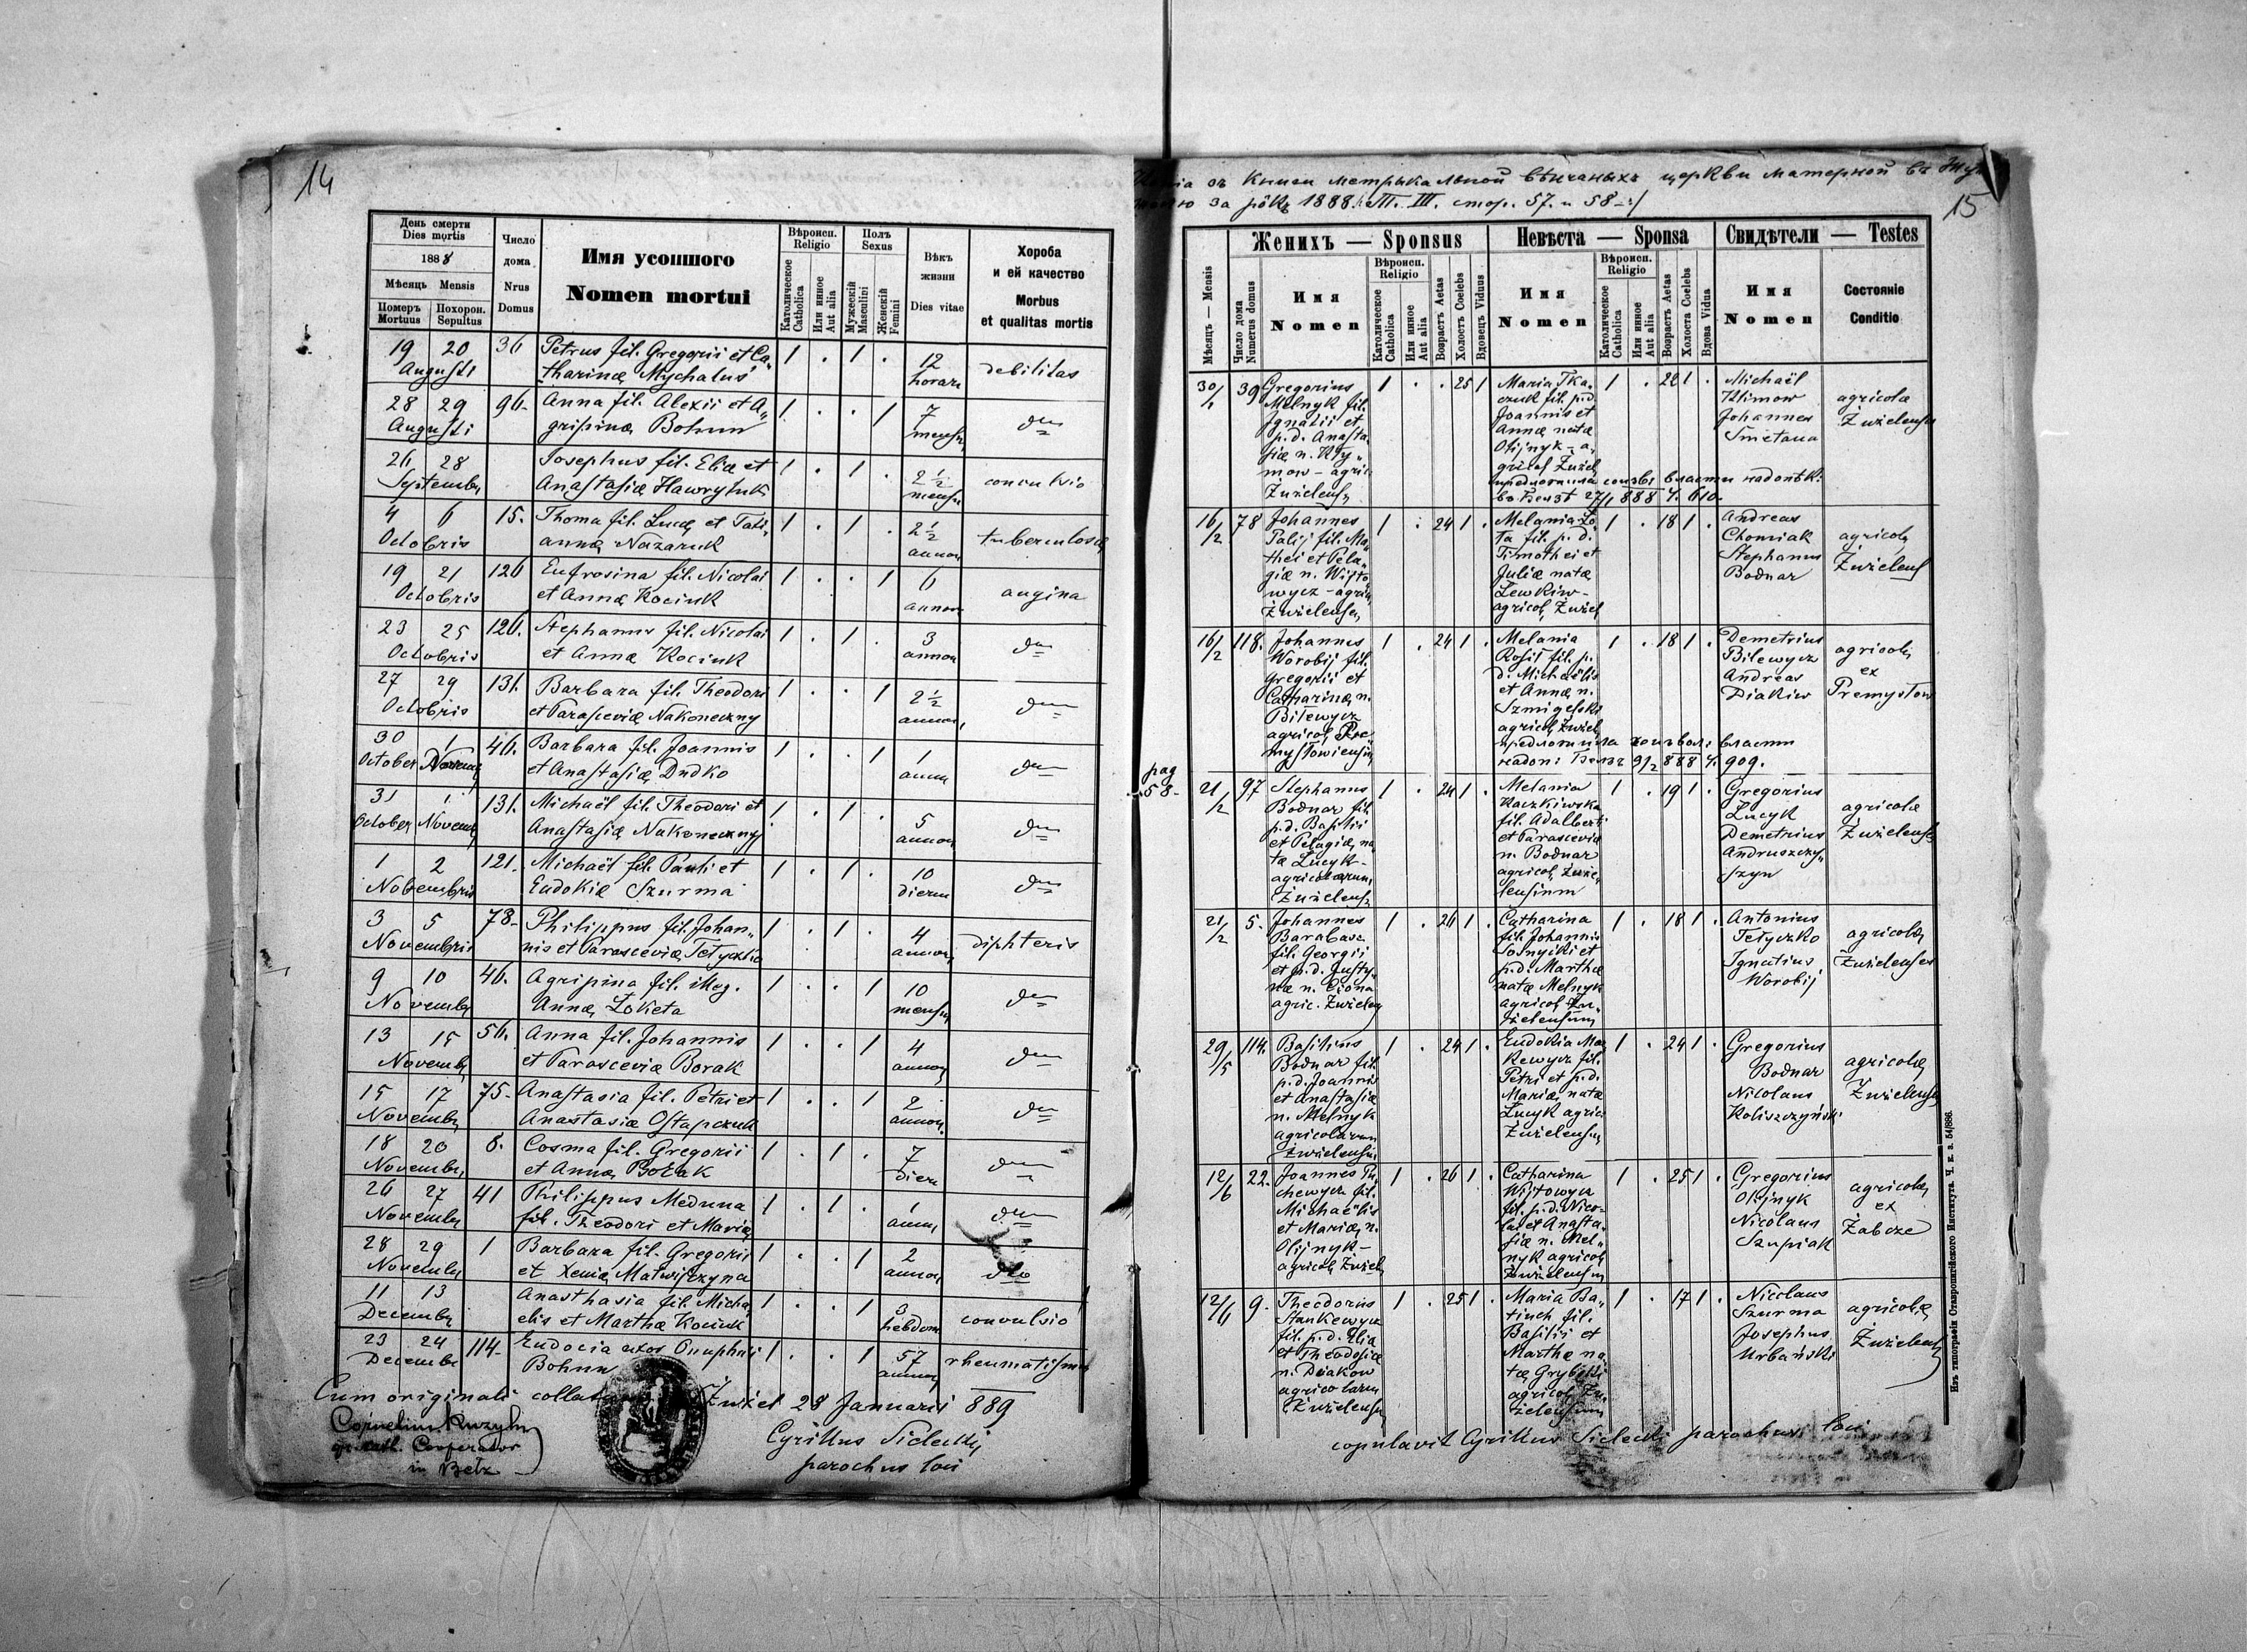 14
День смерти
Dies mortis
1888
Мѣсяцъ Mensis
Номеръ
Mortuus
Похорон.
Sepultus
Число
дома
Nrus
Domus
Имя усопшого
Nomen mortui
Вѣроисп.
Religio
Католическое
Catholica
Или инное
Aut alia
Полъ
Sexus
Мужескій
Masculini
Женскій
Femini
Вѣкъ
жизни
Dies vitae
Хороба
и ей качество
Morbus
et qualitas mortis
19 20 36 Petrus fil. Gregorii et Ca„ 1 . 1 . 12 debilitas
Augusti tharinæ Mychalus horar.
28 29 96. Anna fil. Alexii et A„ 1 . . 1 7 dto
Augusti gripinæ Bohun mens.
26 28 Josephus fil. Eliæ et 1 . 1 . 2 1/2 convulsio
Septembr. Anastasiæ Hawryluk mens.
4 6 15. Thoma fil. Lucæ et Tati„ 1 . 1 . 2 1/2 tuberculosa
Octobris annæ Nazaruk annor.
19 21 126 Eufrosina fil. Nicolai 1 . . 1 6 angina
Octobris et Annæ Kociuk annor.
23 25 126. Stephanus fil. Nicolai 1 . 1 . 3 dto
Octobris et Annæ Kociuk annor.
27 29 131. Barbara fil. Theodori 1 . . 1 2 1/2 dto
Octobris et Parasceviæ Nakoneczny annor.
30 1 46. Barbara fil. Joannis 1 . . 1 1 dto
October Novemb. et Anastasiæ Dudko annu
31 1 131. Michaël fil. Theodori et 1 . 1 . 5 dto
October Novemb. Anastasiæ Nakoneczny annor.
1 2 121. Michaël fil. Pauli et 1 . 1 . 10 dto
Novembris Eudokiæ Szurma dierum
3 5 78. Philippus fil. Johan„ 1 . 1 . 4 diphteris
Novembris nis et Parasceviæ Tetyczko annor.
9 10 46. Agripina fil. illeg. 1 . . 1 10 dto
Novembr. Annæ Łoketa mens.
13 15 56. Anna fil. Johannis 1 . . 1 4 dto
Novembr. et Parasceviæ Borak annor.
15 17 75. Anastasia fil. Petri et 1 . . 1 2 dto
Novembr. Anastasiæ Ostapczuk annor.
18 20 8. Cosma fil. Gregorii 1 . 1 . 7 dto
Novembr. et Annæ Bożak dier.
26 27 41 Philippus Meduna 1 . 1 . 1 dto
Novembr. fil. Theodori et Mariæ anni
28 29 1 Barbara fil. Gregorii 1 . . 1 2 dto
Novembr. et Xeniæ Matwijczyna annor.
11 13 Anasthasia fil. Micha„ 1 . . 1 3 convulsio
Decembr. elis et Marthæ Kociuk hebdom.
23 24 114. Eudocia uxor Onuphrii 1 . . 1 57 rheumatismus
Decembr. Bohun annor.
Cum originali collatum Żużel 28 Januarii 889
Cornelius Kuzyk
gr. cath. Cooperator
in Bełz
Cyrillus Sielecki
parochus loci
Копія зъ книги метрыкальной вѣнчаныхъ церкви матерной въ
за рôкъ 1888. /: Т. III. стор. 57. и 58 :/
15
Мѣсяць — Mensis
Число дома
Numerus domus
Женихъ — Sponsus
Имя
Nomen
Вѣроисп.
Religio
Католическое
Catholica
Или инное
Aut alia
Возрастъ Aetas
Холостъ Coelebs
Вдовецъ Viduus
Невѣста — Sponsa
Имя
Nomen
Вѣроисп.
Religio
Католическое
Catholica
Или инное
Aut alia
Возрастъ Aetas
Холоста Coelebs
Вдова Vidua
Свидѣтели — Testes
Имя
Nomen
Состояніе
Conditio
30/1 39 Gregorius 1 . . 25 1 Maria Tka„ 1 . 22 1 . Michaël
Melnyk fil. czuk fil. p.d. Klimow agricolæ
Ignatii et Joannis et Johannes Żużelenses
p.d. Anasta„ Annæ natæ Smetana
siæ n. Kły„ Olijnyk - a„
mow - agric. gricol. Żużel.
Żużelens. предложила созвол. власти надопѣк.
въ Белзѣ 27/1 888 Ч. 610.
16/2 78 Johannes 1 . 24 1 . Melania Ło„ 1 . 18 1 . Andreas
Palij fil. Ma„ ta fil. p.d. Chomiak agricolæ
thei et Pela„ Timothei et Stephanus Żużelens.
giæ n. Wijto„ Juliæ natæ Bodnar
wycz - agric. Lewkiw -
Żużelens. agricol. Żużel.
16/2 118. Johannes 1 . 24 1 . Melania 1 . 18 1 . Demetrius
Worobij fil. Rosił fil. p. Bilewycz agricolæ
Gregorii et d. Michaëlis Andreas ex
Catharinæ n. et Annæ n. Diakiw Premysłow
Bilewycz Szmigelski
agricol. Pre„ agricol. Żużel.
mysłowiensium предложила созвол. власти
надоп. Белз 9/2 888 Ч. 909.
pag
58-
21/2 97 Stephanus 1 . 24 1 . Melania 1 . 19 1 . Gregorius
Bodnar fil. Kaczkiwska Lucyk agricolæ
p.d. Basilii fil. Adalberti Demetrius Żużelenses
et Pelagiæ na„ et Parasceviæ Andruszczy„
tæ Lucyk - n. Bodnar szyn
agricolarum agricol. Żuże„
Żużelens. lensium
21/2 5. Johannes 1 . 26 1 . Catharina 1 . 18 1 . Antonius
Barabasz fil. Johannis Tetyczko agricolæ
fil. Georgii Sosnycki et Ignatius Żużelenses
et p.d. Justy„ p.d. Marthæ Worobij
næ n. Dziona natæ Melnyk
agric. Żużelens. agricol. Żu„
żelensium
29/5 114. Basilius 1 . 24 1 . Eudokia Mac„ 1 . 24 1 . Gregorius
Bodnar fil. kewycz fil. Bodnar agricolæ
p.d. Joannis Petri et p.d. Nicolaus Żużelenses
et Anastasiæ Mariæ natæ Koliszczyński
n. Melnyk Łucyk agric.
agricolarum Żużelens.
Żużelensium
12/6 22. Joannes Pu„ 1 . 26 1 . Catharina 1 . 25 1 . Gregorius
chewycz fil. Wijtowycz Olijnyk agricolæ
Michaëlis fil. p.d. Nico„ Nicolaus ex
et Mariæ n. lai et Anasta„ Szupiak Żabcze
Olijnyk - siæ n. Mel„
agricol. Żużel. nyk agricol.
Żużelensium
12/6 9. Theodorus 1 . 25 1 . Maria Ba„ 1 . 17 1 . Nicolaus
Stankewycz tiuch fil. Szurma agricolæ
fil. p.d. Eliæ Basilii et Josephus Żużelens.
et Theodosiæ Marthæ na„ Urbański
n. Diakow tæ Grybski
agricolarum agricol. Żu„
Żużelens. żelensium
copulavit Cyrillus Sielecki parochus loci
Изъ типографіи Ставропигійского Института. Ч. к. з. 54/886.